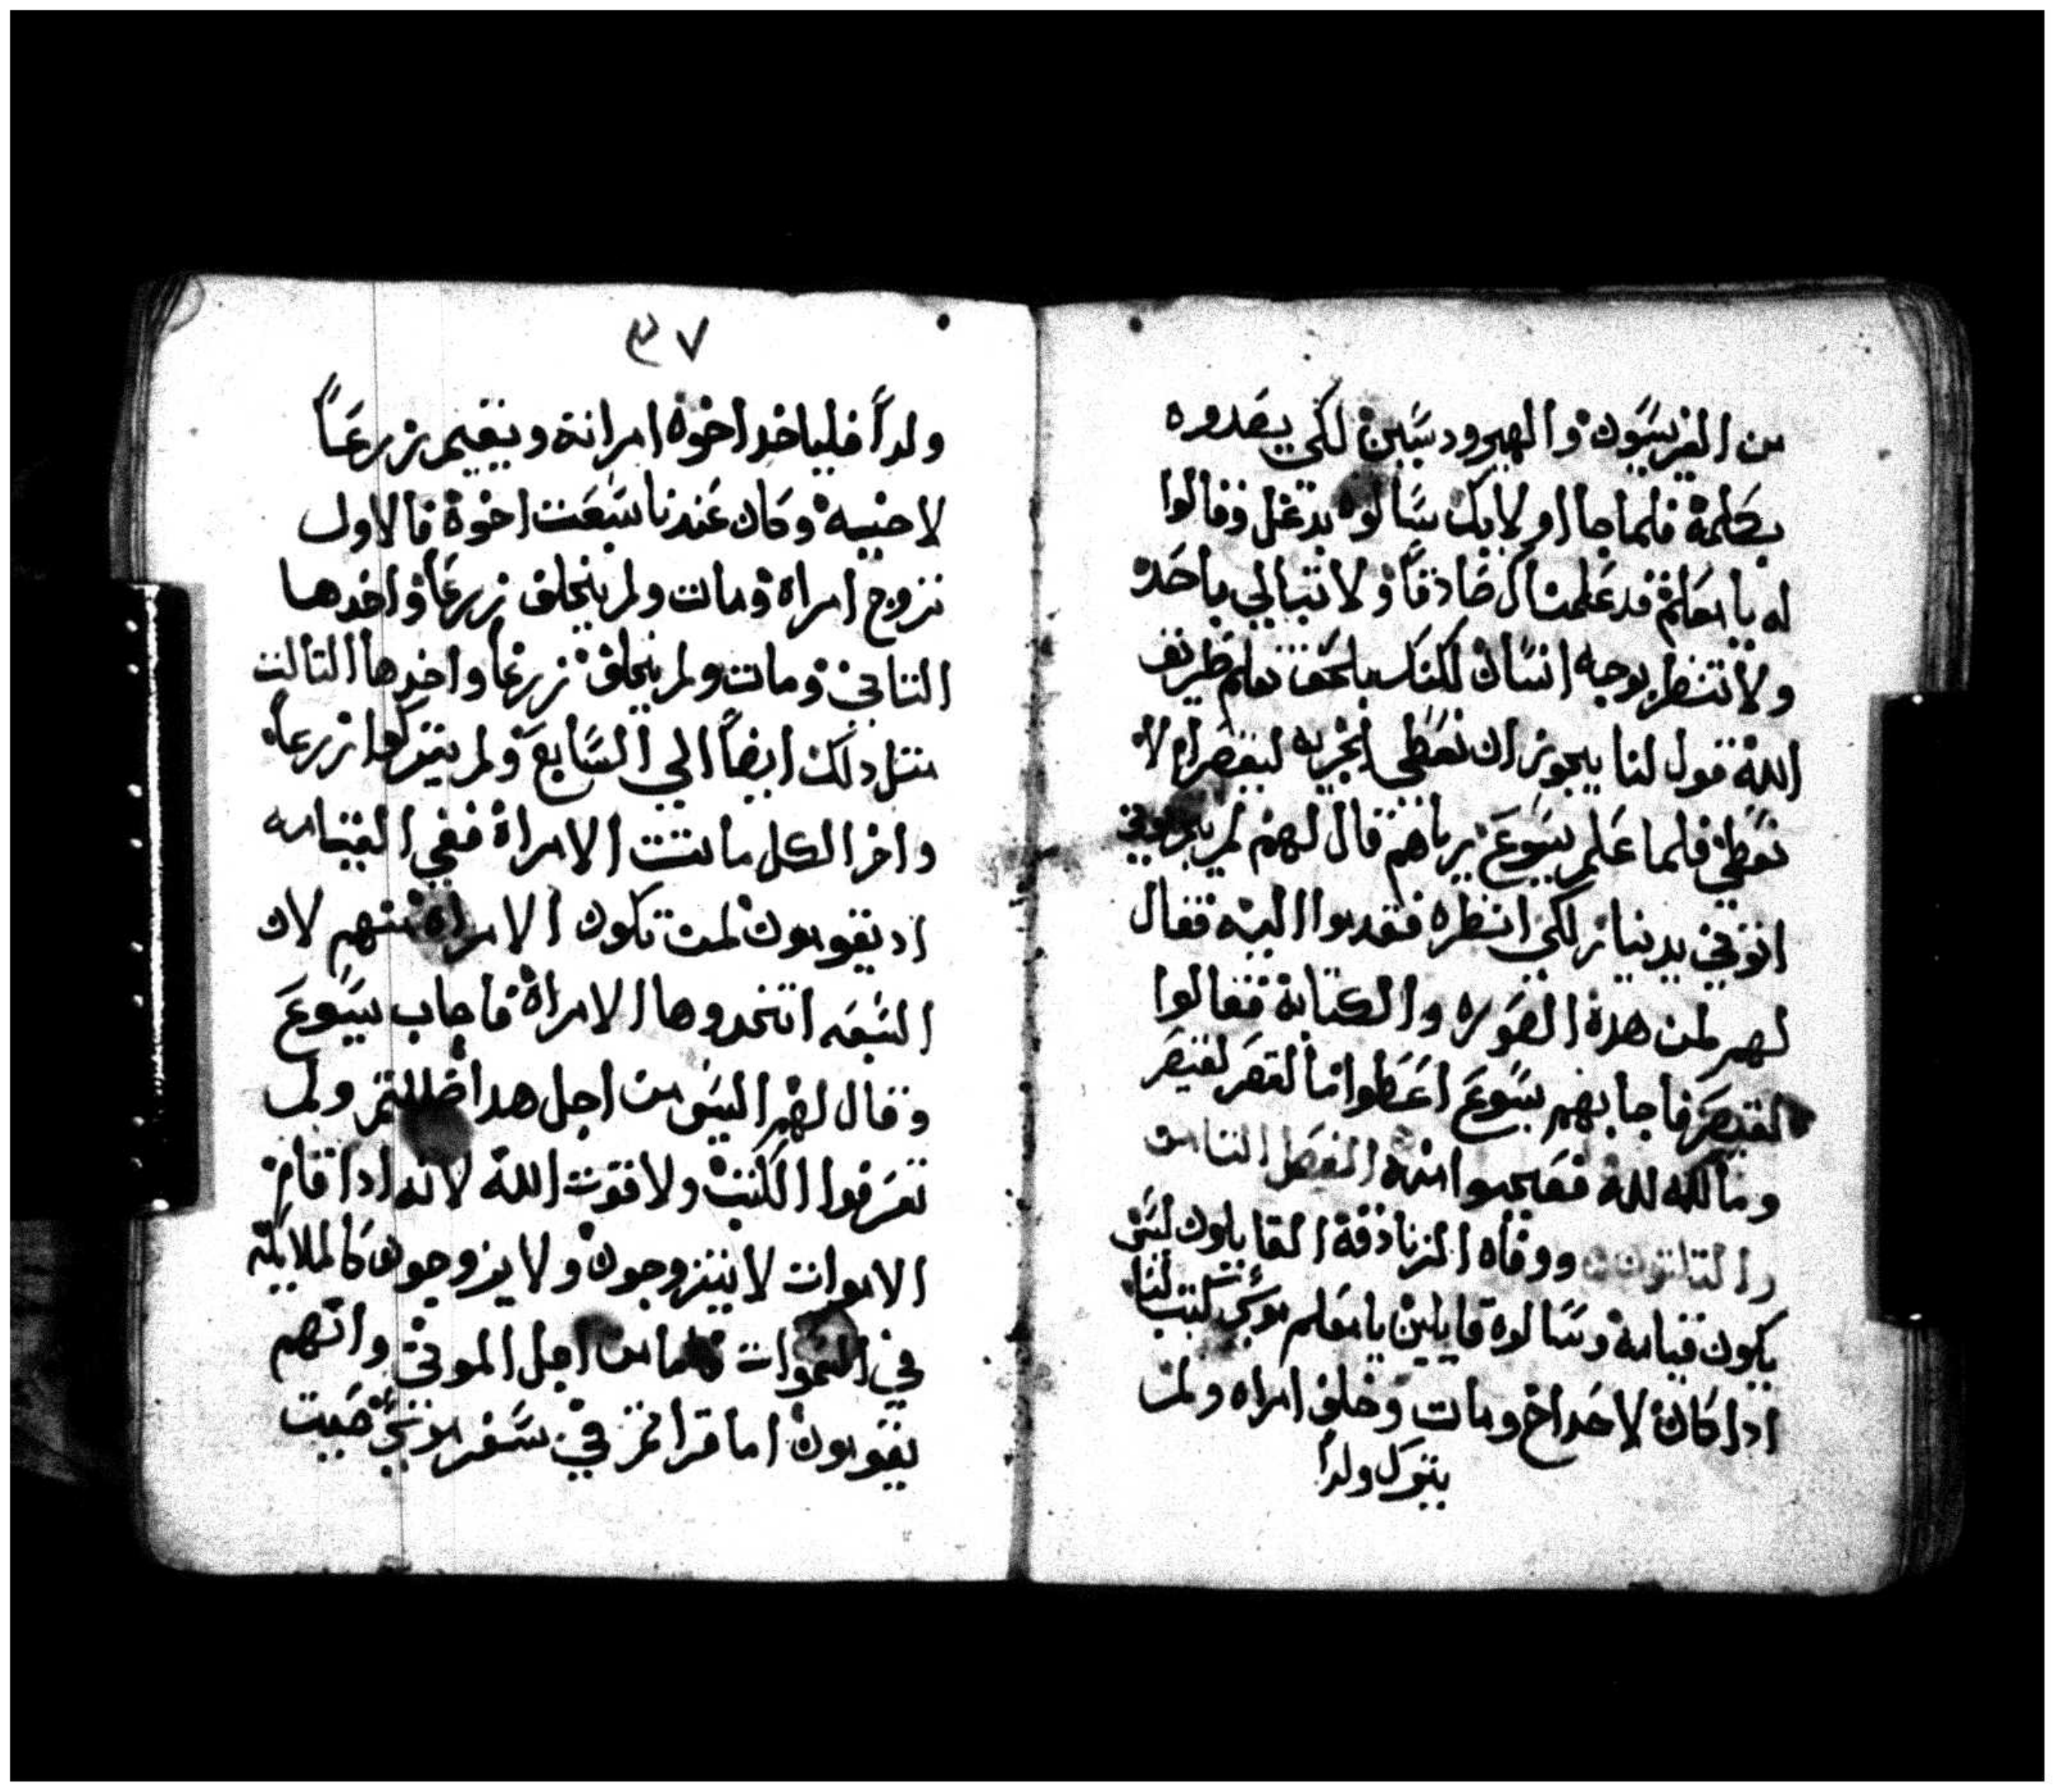 من الفريسيون والهيرودسيين لكي يصدوره
بكلمة فلما جا اوليك سالوه بدغل وقالوا
له يا معلم قد علمنا انك صادقاً ولا تبالي باحد
ولا تنظر بوجه انسان لكنك بلحق تعلم طريف
الله فقول لنا يجوز ان نعطي الجزيه لقيصر ام لا
نعطي فلما علم يسوع برياهم قال لهم لم تجربوني
اتوني بدينار لكي انظره فقدموا اليه فقال
لهم لمن هده الصوره والكتابة فقالوا
لقيصر فاجابهم يسوع اعطوا ما لقيصر لقيصر
وما لله لله فتعجبوا منه الفصل التامن
والتلتون ووفاه الزنادقة القايلون ليس
يكون قيامة وسالوه قايلين يا معلم موسي كتب لنا
ادا كان لاحد اخ ومات وخلف امراه ولم
يترك ولداً
٣٧
ولداً فلياخد اخوه امراتة ويقيم زرعاً
لاخيه وكان عندنا سبعت اخوة فالاول
تزوج امراة ومات ولم يخلف زرعاً واخدها
التاني ومات ولم يخلف زرعاً واخدها التالت
متل دلك ايضاً الي السابع ولم يتركوا زرعاً
واخر الكل ماتت الامراة ففي القيامه
اد يقومون لمن تكون الامراة منهم لان
السبعه اتخدوها الامراة فاجاب يسوع
وقال لهم اليس من اجل هدا ضللتم ولم
تعرفوا الكتب ولا قوت الله لانه ادا قام
الاموات لا يتزوجون ولا يزوجون كالملايكة
في السموات فاما من اجل الموتي وانهم
يقومون اما قراتم في سفر موسي حيت